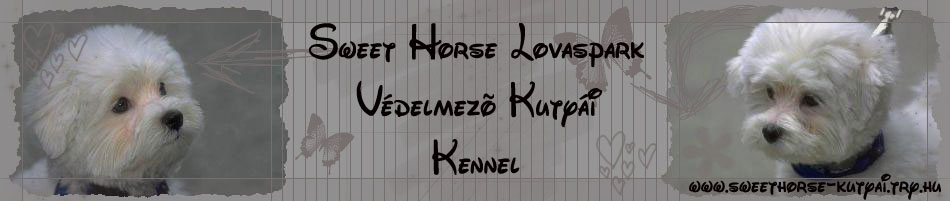 Sweet Horse Lovaspark
Védelmezõ Kutyái
Kennel
www.sweethorse-kutyai.try.hu